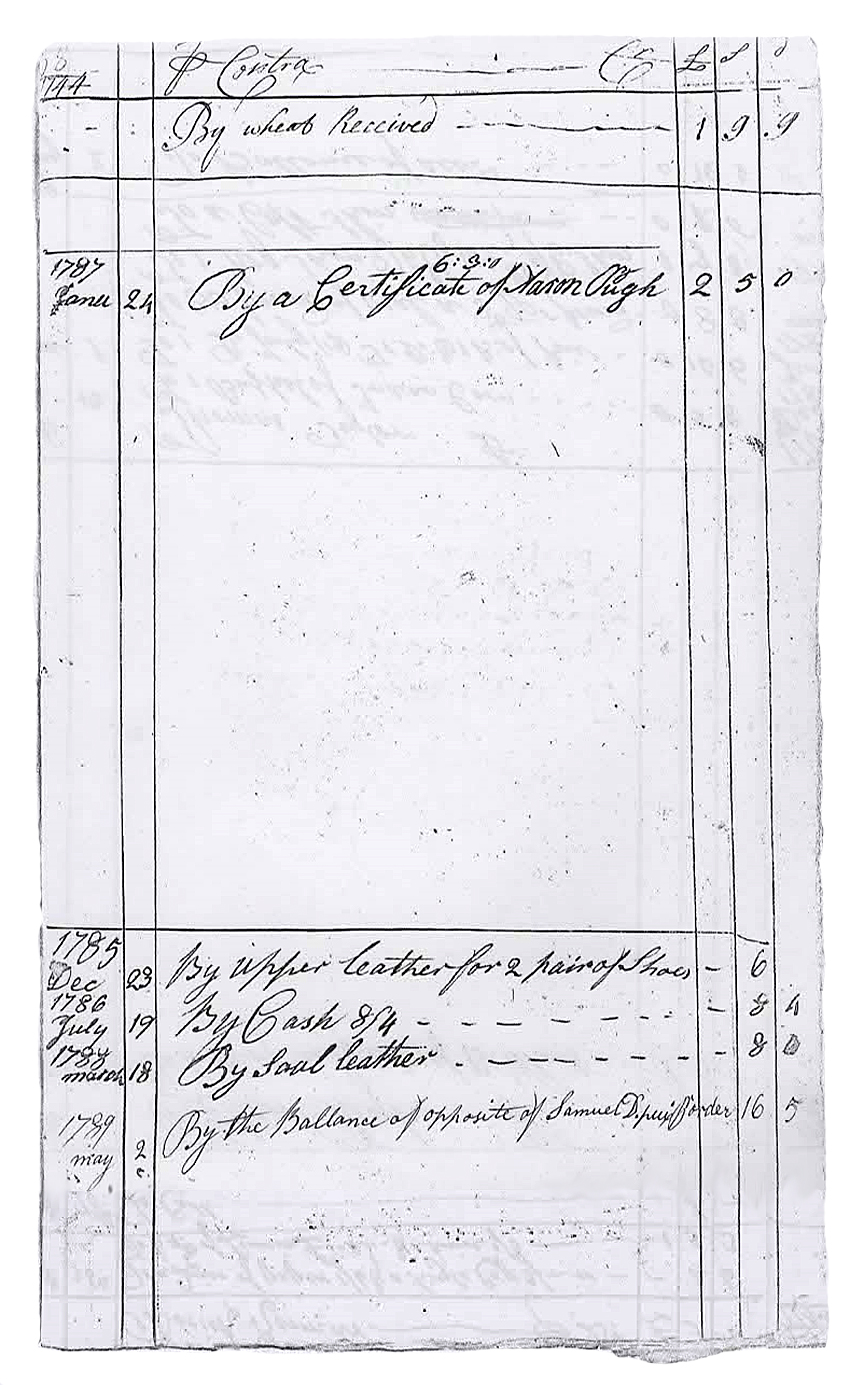 1744 P Contra Cr £ s d
By wheat Received 1 9 9
1787
6:3:0
Janu 24 By a Certificate of Aaron Pugh 2 5 0
1785
Dec 23 By upper leather for 2 pair of Shoes - 6
1786
July 19 By Cash 8/4 - - - - - - - 8 4
1788
march 18 By Soal leather - - - - - - 8 0
1789
may 2 By the Ballance of opposite of Samuel order 16 5